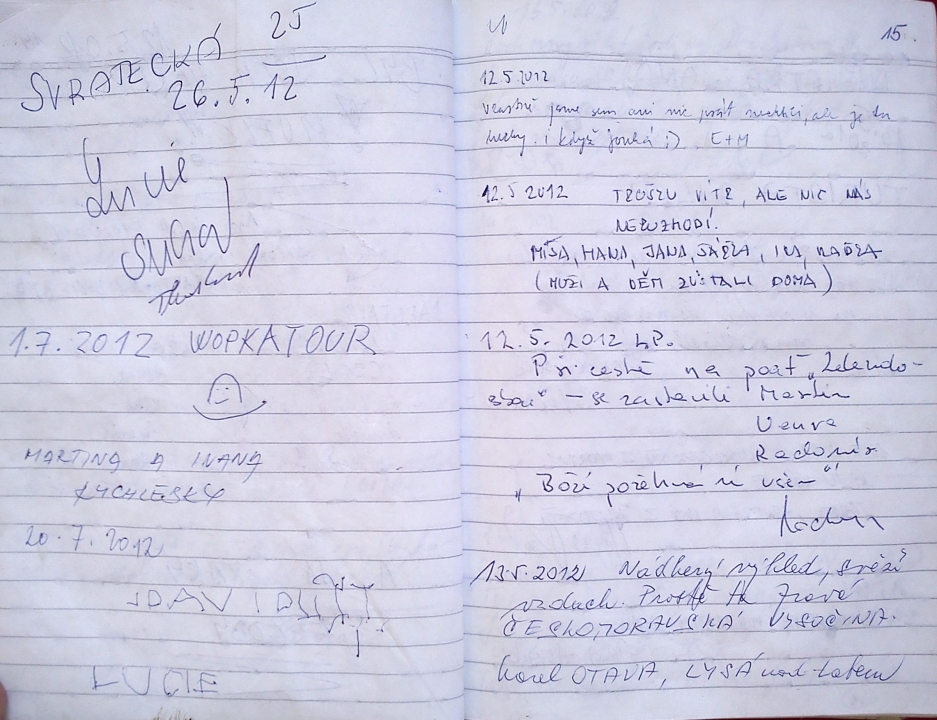 25
SVRATECKÁ
26.5.12
Lucie
1.7.2012 WOPKATOUR
MARTINA A IVANA
20.7.2012
DAVID
LUCIE
15.
12.5.2012
jsme sem ani nic psát nechtěli, ale je tu
hezky. i když fouká :) E+M
12.5 2012 TROŠKU VÍTR, ALE NIC NÁS
NEROZHODÍ.
MÍŠA, HANA, JANA, ŠÁRKA, IVA, RADKA
(MUŽI A DĚTI ZŮSTALI DOMA)
12.5.2012 L.P.
Při cestě na pouť „Zelendo-
– se zastavili Martin
Venva
Radomír
„Boží požehnání všem“
13.5.2012 Nádherný výhled, svěží
vzduch. Prostě ta pravá
ČESKOMORAVSKÁ VYSOČINA.
Karel OTAVA, LYSÁ nad Labem